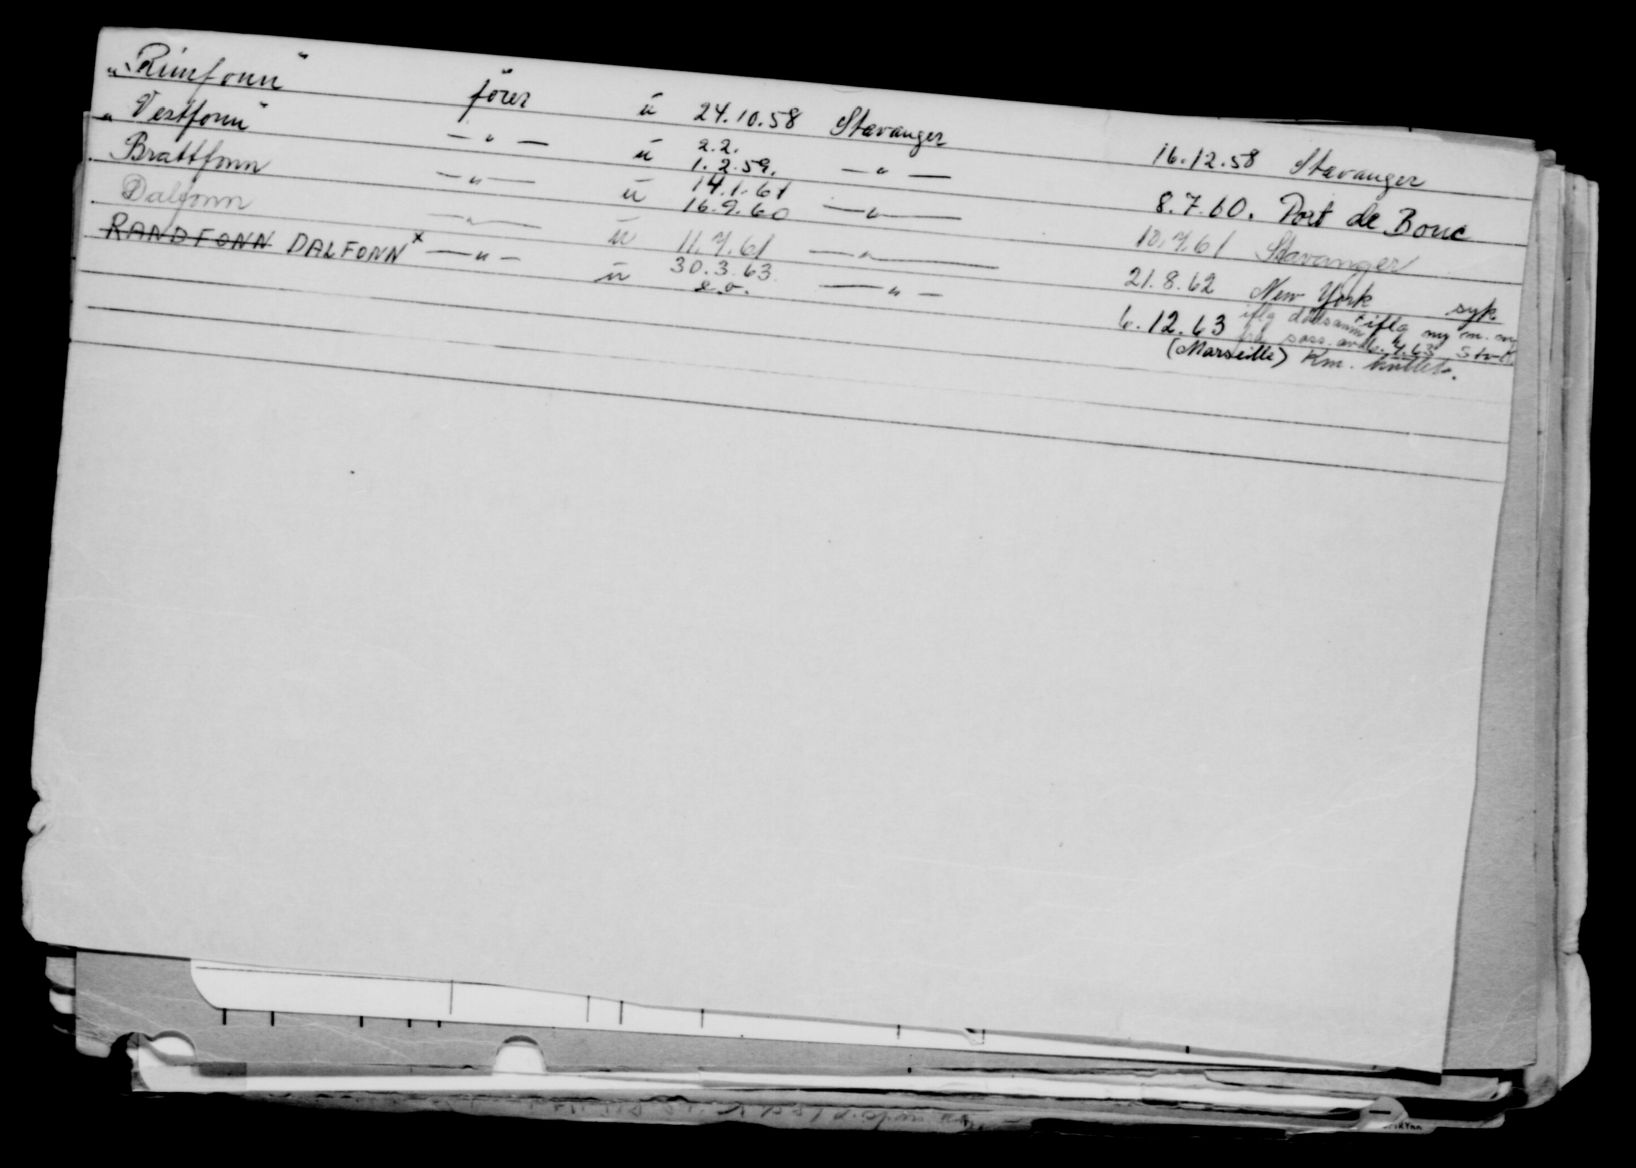 "Rimfonn" fører u 24.10.58 Stavanger 16.12.58 Stavanger
"Vestfonn" — " — u 2.2.
1.2.59. — " — 8.7.60. Port de Bouc
Brattfonn — " — u 14.1.61
16.9.60 — " — 10.7.61 Stavanger
Dalfonn — " — u 11.7.61 — " — 21.8.62 New York syk
RANDFONN DALFONN x — " — u 30.3.63
e.o. — " — 6.12.63 iflg x iflg ny m.
(Marseille) Km.